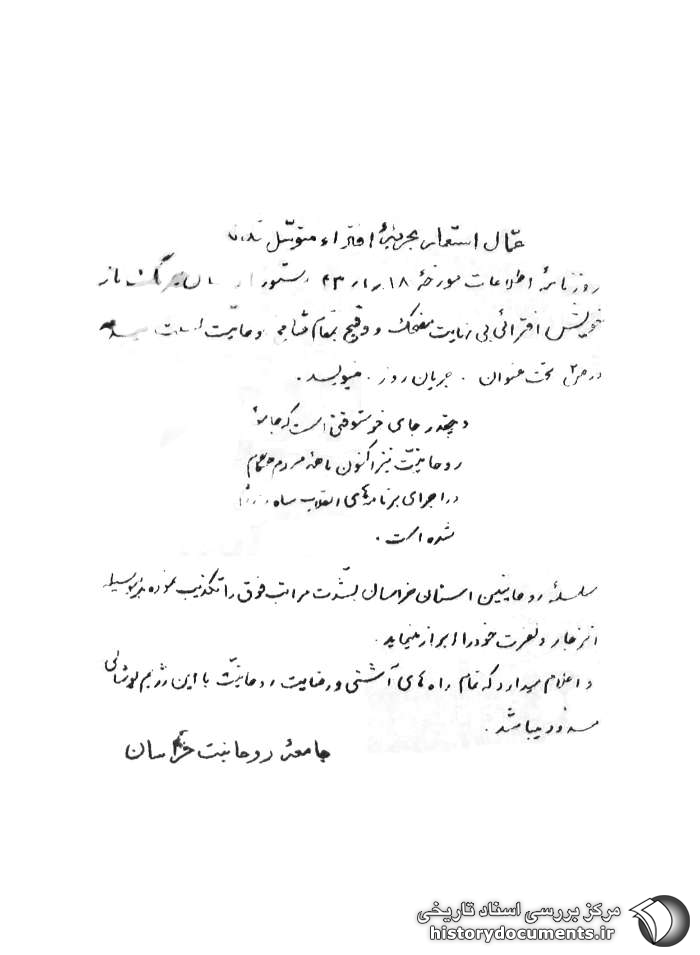 عمّال استعمار بحربهٔ افتراء متوسّل شدند
روزنامهٔ اطلاعات مورخهٔ ۱۸ ر ۱ ر ۴۳ بدستور از
خویش افترائی بی نهایت مضحک و وقیح بمقام شامخ روحانیّت
در ص ۲ تحت عنوان . جریان روز . مینویسد .
و چقدر جای خوشوقتی است که جامعهٔ
روحانیّت نیز اکنون با همهٔ مردم همگام
در اجرای برنامه‌های انقلاب شاه و
شده است .
سلسلهٔ روحانیین استان خراسان بشدّت مراتب فوق را تکذیب نموده بدینوسیله
انزجار و نفرت خود را ابراز مینماید .
و اعلام میدارد که تمام راه‌های آشتی و رضایت روحانیّت با این رژیم پوشالی
مسدود میباشد .
جامعهٔ روحانیت خراسان
مرکز بررسی اسناد تاریخی
historydocuments.ir